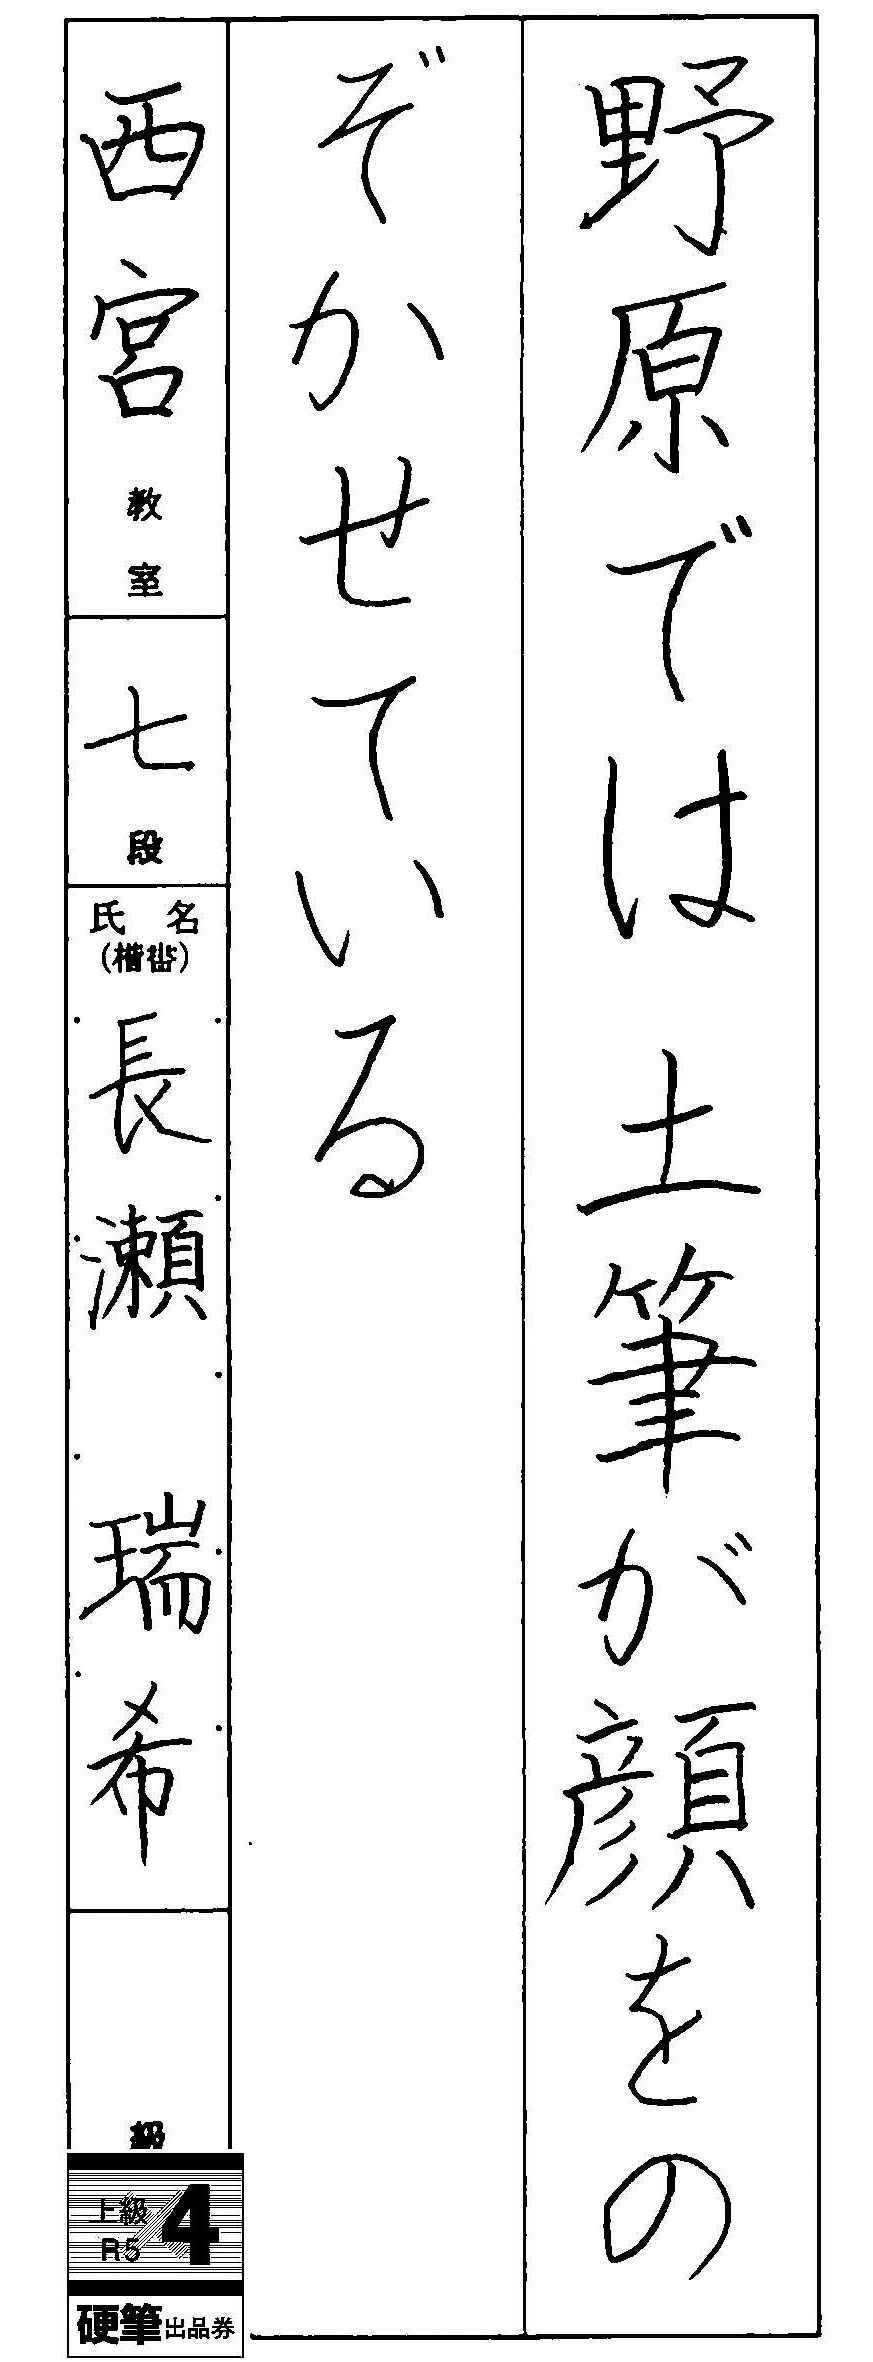 野原では土筆が顔をの
ぞかせている
西宮教室
七段
氏名
(楷書)
長瀬 瑞希
級
上級
R5
4
硬筆出品券